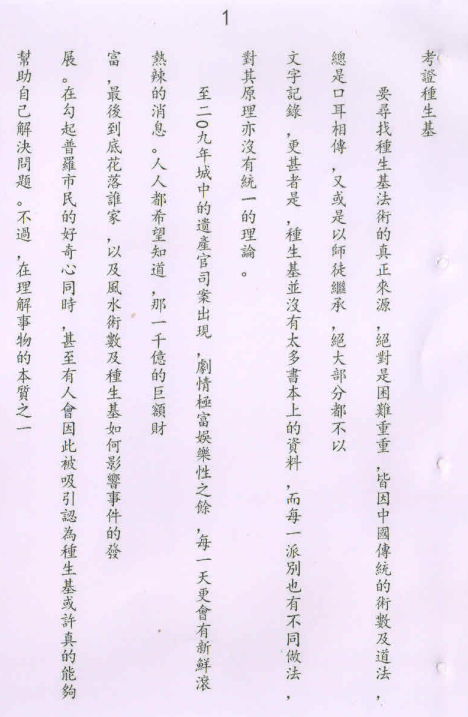 1
考證種生基
要尋找種生基法術的真正來源，絕對是困難重重，皆因中國傳統的術數及道法，
總是口耳相傳，又或是以師徒繼承，絕大部分都不以
文字記錄，更甚者是，種生基並沒有太多書本上的資料，而每一派別也有不同做法，
對其原理亦沒有統一的理論。
至二○九年城中的遺產官司案出現，劇情極富娛樂性之餘，每一天更會有新鮮滾
熱辣的消息。人人都希望知道，那一千億的巨額財
富，最後到底花落誰家，以及風水術數及種生基如何影響事件的發
展。在勾起普羅市民的好奇心同時，甚至有人會因此被吸引認為種生基或許真的能夠
幫助自己解決問題。不過，在理解事物的本質之一